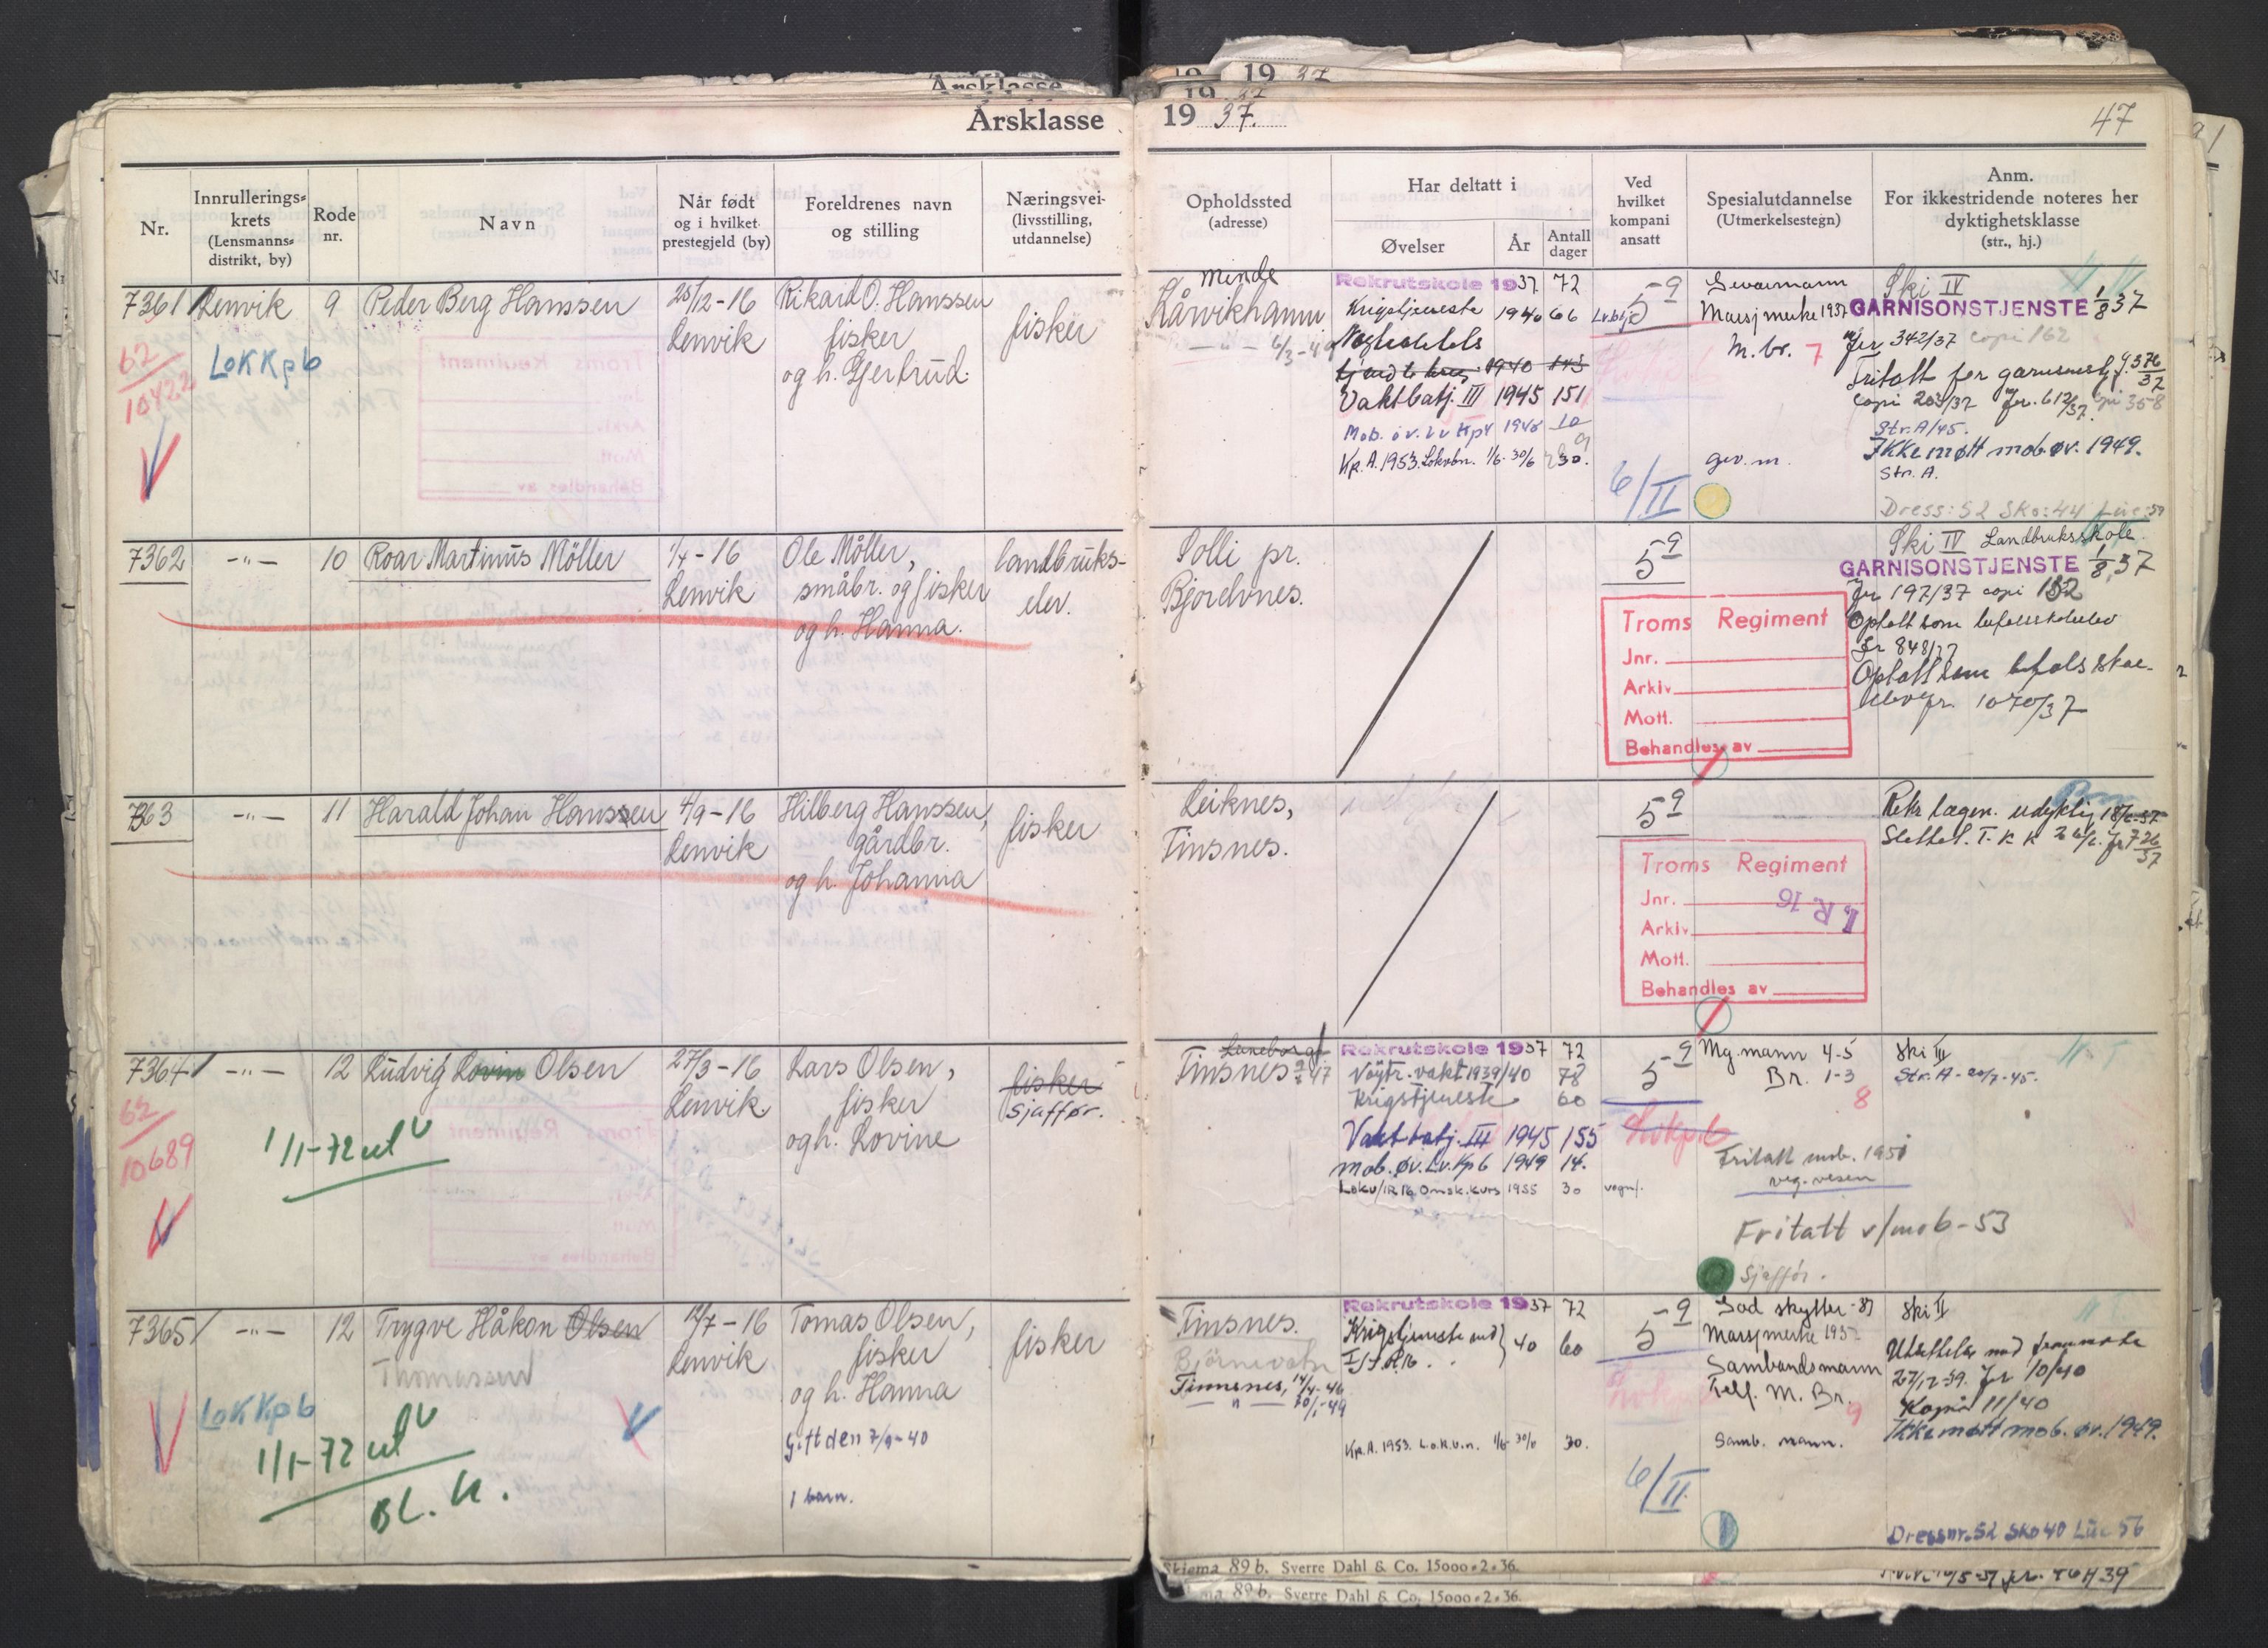 Årsklasse 1937.
47
Nr.
Innrullerings-
krets
(Lensmanns-
distrikt, by)
Rode
nr.
Navn
Når født
og i hvilket
prestegjeld (by)
Foreldrenes navn
og stilling
Næringsvei
(livsstilling,
utdannelse)
Opholdssted
(adresse)
Har deltatt i
Øvelser
År
Antall
dager
Ved
hvilket
kompani
ansatt
Spesialutdannelse
(Utmerkelsestegn)
Anm.
For ikkestridende noteres her
dyktighetsklasse
(str., hj.)
7361
62/10422
Lenvik
LokKp6
9
Peder Berg Hanssen
28/12-16
Lenvik
Rikard O. Hanssen
fisker
og h. Gjertrud.
fisker
Minde
Kårvikhamn
Rekrutskole 1937 72
Krigstjeneste 1940 66
Vaktbatj. III 1945 151
Mob. øv. Lv Kp 4 1948 10
Kp. A. 1953. Lokvbn. 1/6-30/6 30.
5-9
6/II
Geværmann
Marsjmerke 1937
M.br. 7
gev.m.
Ski IV
GARNISONSTJENSTE 1/8 37
Jr 342/37 copi 162
Fritatt for garnisonstj. J. 576/37
copi 203/37 Jr. 612/37 copi 358
Str. A/45.
Ikke møtt mob.øv. 1949.
Str. A.
Dress: 52 Sko: 44 Lue: 59
7362
-"-
10
Roar Martinus Möller
1/4-16
Lenvik
Ole Möller,
småbr. og fisker
og h. Hanna.
landbruks-
elev.
Solli pr.
Bjorelvnes.
5-9
Troms Regiment
Jnr.
Arkiv
Mott.
Behandles av
Ski IV Landbruksskole.
GARNISONSTJENSTE 1/8 37
Jr 197/37 copi 132
Optatt som befalsskoleelev
Jr 848/37
Optatt som befalsskole-
elev jr. 1070/37
7363
-"-
11
Harald Johan Hanssen
4/9-16
Lenvik
Hilberg Hanssen,
gårdbr.
og h. Johanna
fisker
Leiknes,
Finsnes.
5-9
Troms Regiment
Jnr.
Arkiv
Mott.
Behandles av
I.R. 16
Rekr lægen. udyktig 18/6-37
Slettet. T. K K 26/6. Jr 726/37
7364
62/10689
-"-
12
Ludvig Lovin Olsen
1/1-72 ut
27/3-16
Lenvik
Lars Olsen,
fisker
og h. Lovine
fisker
Sjaffør.
Finsnes
Rekrutskole 1937 72
Nøytr. vakt 1939/40 78
Krigstjeneste 60
Vakt batj. III 1945 155
mob. øv. Lv. Kp 6 1949 14.
Lokv/IR 16 Omsk. kurs 1955 30
5-9
Mg. mann 4-5
Br. 1-3
8
Fritatt mob. 1951
veg. vesen
Fritatt v/mob-53
Sjaffør.
Ski III
Str. A - 20/7-45.
7365
-"-
LokKp6
12
Trygve Håkon Olsen
Thomassen
1/1-72 ut
BL. K.
12/7-16
Lenvik
Tomas Olsen,
fisker
og h. Hanna
Gift den 7/9-40
1 barn.
fisker
Finsnes.
Björnevatn
Finnsnes, 14/4-46
-"- 20/1-49
Rekrutskole 1937 72
Krigstjeneste ved
I/I.R.16. 40 60
Kp. A. 1953. L.o.k.v.n. 1/6-30/6 30.
5-9
6/II
God skytter-37
Marsjmerke 193
Sambandsmann
Telf. M. Br. 9
Samb. mann.
Ski II
27/12-39. Jr 10/40
Kopi 11/40
Ikke møtt mob. øv. 1949.
Dressnr. 52 Sko 40 Lue 56
Skjema 89 b. Sverre Dahl & Co. 15000.2.36.
89 b. Sverre Dahl & Co. 15000.2.36.